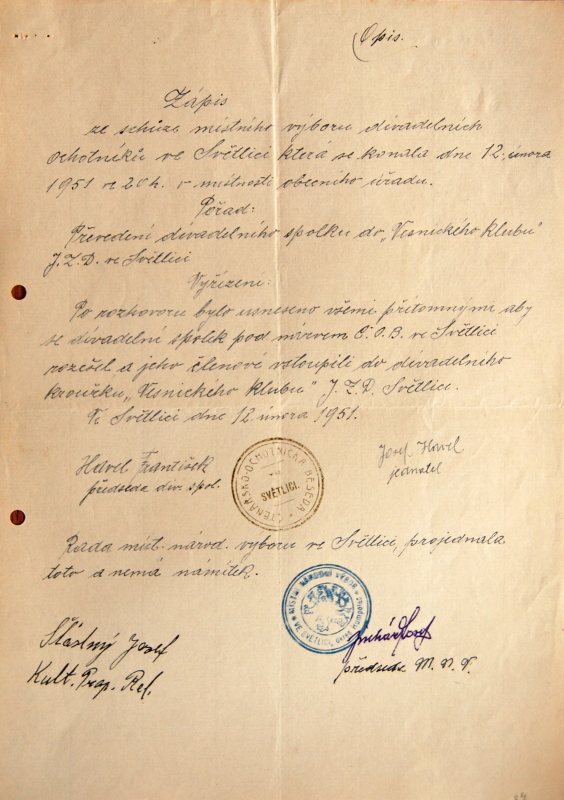 Opis.
Zápis
ze schůze místního výboru divadelních
ochotníků ve Světlici která se konala dne 12. února
1951 ve 20 h. v místnosti obecního úřadu.
Pořad:
Převedení divadelního spolku do „Vesnického klubu"
J.Z.D. ve Světlici
Vyřízení:
Po rozhovoru bylo usneseno všemi přítomnými aby
se divadelní spolek pod názvem Č.O.B. ve Světlici
rozešel a jeho členové vstoupili do divadelního
kroužku „Vesnického klubu" J.Z.D. Světlice.
Ve Světlici dne 12. února 1951.
Havel František
předseda div. spol.
ČTENÁŘSKO-OCHOTNICKÁ BESEDA
SVĚTLICI.
Josef Havel
jednatel
Rada míst. národ. výboru ve Světlici, projednala
toto a nemá námitek.
MÍSTNÍ NÁRODNÍ VÝBOR
VE SVĚTLICI, okres Humpolec
Šťastný Josef
Kult. Prop. Ref.
Josef
předseda M.N.V.